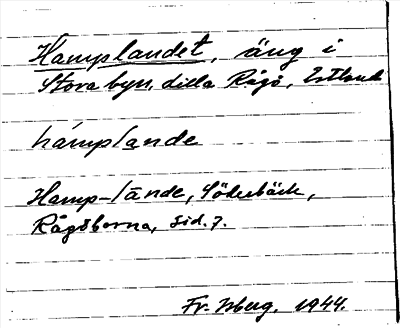 Hamplandet, äng i
Stora byn, Lilla Rågö, Estland
hámplande
Hamp-lände, Söderbäck,
Rågöborna, sid. 7.
Fr. Isberg. 1944.